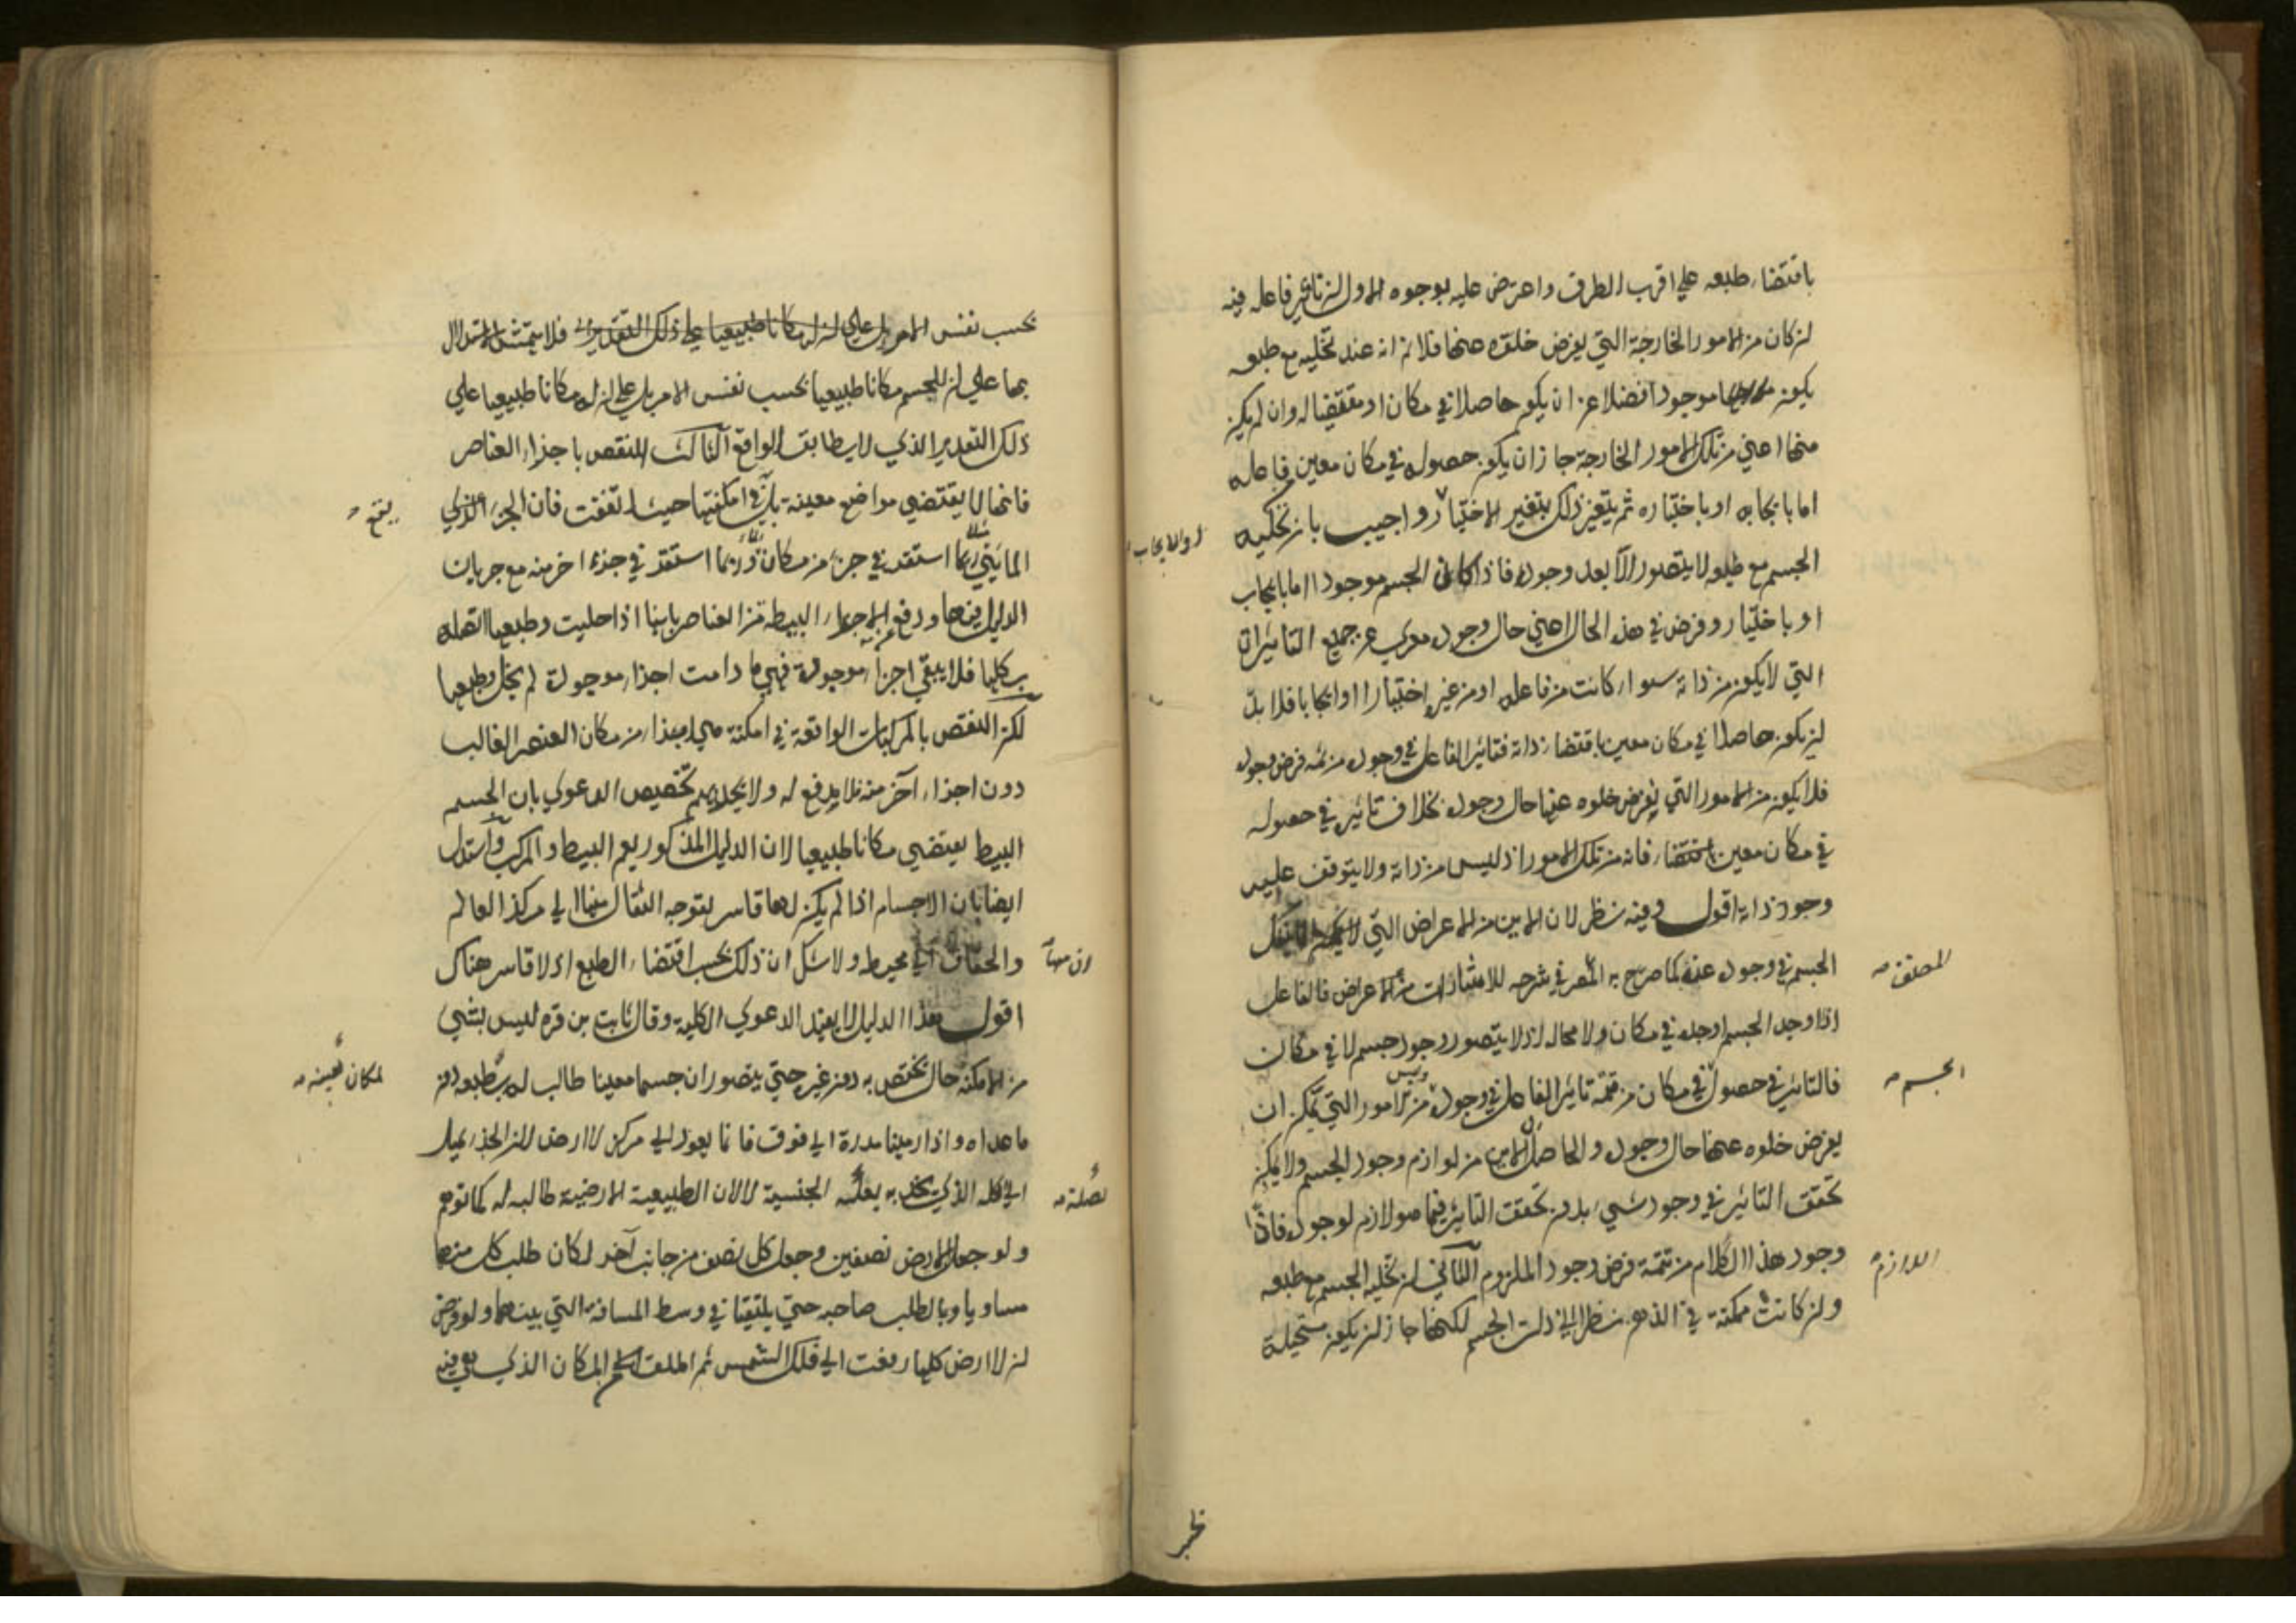 باقتضاء طبعه علي اقرب الطرق واعترض عليه بوجوه الاول ان تاثير فاعله فيه
ان كان من الامور الخارجة التي يفرض خلوه عنها فلا نم انه عند تخليه مع طبعه
يكون موجودا فضلا عن ان يكون حاصلا في مكان او مقتضيا له وان لم يكن
منها اعني من تلك الامور الخارجة جاز ان يكون حصوله في مكان معين فاعله
اما بايجابه او باختياره ثم يتغير ذلك بتغير الاختيار واجيب بان تخليه
او الايجاب
الجسم مع طبعه لا يتصور الا بعد وجوده فاذا كان الجسم موجودا اما بايجاب
او باختيار وفرض في هذه الحال اعني حال وجوده عري عن جميع التاثيرات
التي لا يكون من ذاته سواء كانت من فاعله او من غيره اختيارا او ايجابا فلا بد
ان يكون حاصلا في مكان معين باقتضاء ذاته فتاثير الفاعل في وجوده من تتمه فرض وجوده
فلا يكون من الامور التي يفرض خلوه عنها حال وجوده بخلاف تاثيره في حصوله
في مكان معين فانه من تلك الامور اذ ليس من ذاته ولا يتوقف عليه
وجود ذاته اقول وفيه نظر لان الاين من الاعراض التي لا
الجسم في وجوده عنه كما صرح به المص في شرحه للاشارات من الاعراض فالفاعل
المصنف
اذا وجد الجسم اوجده في مكان ولا محاله اذ لا يتصور وجود جسم لا في مكان
فالتاثير في حصوله في مكان من تتمة تاثير الفاعل في وجوده وليس من الامور التي يمكن ان
الجسم
يفرض خلوه عنها حال وجوده والحاصل ان الاين من لوازم وجود الجسم ولا يمكن
تحقق التاثير في وجود شيء بدون تحقق التاثير فيما هو لازم لوجوده فاذا
وجود هذا الكلام من تتمة فرض وجود الملزوم الثاني ان تخليه الجسم مع طبعه
اللازم
وان كانت ممكنة في الذهن نظرا الي ذات الجسم لكنها جاز ان يكون مستحيلة
بحسب
بحسب نفس الامر بل علي ان له مكانا طبيعيا علي ذلك التقدير فلا يتمشي الاستدلال
بها علي ان للجسم مكانا طبيعيا بحسب نفس الامر بل علي ان له مكانا طبيعيا علي
ذلك التقدير الذي لا يطابق الواقع الثالث النقض باجزاء العناصر
فانها لا يقتضي مواضع معينة بل في امكنتها حيث اتفقت فان الجزء الذي
يقع
المائي ربما استقر في جزء من مكان وربما استقر في جزء اخر منه مع جريان
الدليل فيها ودفع الاجزاء البسيطة من العناصر بانها اذا خليت وطبعها اتصلت
بكلها فلا يبقي اجزاء موجودة فهي ما دامت اجزاء موجودة لم يخل وطبعها
لكن النقض بالمركبات الواقعة في امكنة من مكان العنصر الغالب
دون اجزاء آخر منه فلا يدفع له ولا يجديهم تخصيص الدعوي بان الجسم
البسيط يقتضي مكانا طبيعيا لان الدليل المذكور يعم البسيط والمركب واستدل
ايضا بان الاجسام اذا لم يكن لها قاسر يتوجه الثقال منها الي مركز العالم
والخفاف الي محيطه ولا شك ان ذلك بحسب اقتضاء الطبع اذ لا قاسر هناك
اقول هذا الدليل لا يفيد الدعوي الكلية وقال ثابت بن قره ليس بشي
من الامكنة حال يختص به دون غيره حتي يتصور ان جسما معينا طالب له بطبعه دون
لمكان بعينه
ما عداه واذا رمينا مدرة الي فوق فانما يعود الي مركز الارض لان الجزء يميل
الي كله الذي به بعلة الجنسية لا لان الطبيعية الارضية طالبه له كما توهم
ولو جعل الارض نصفين وجعل كل نصف من جانب آخر لكان طلب كل منهما
مساويا وبالطلب صاحبه حتي يلتقيا في وسط المسافة التي بينهما ولو فرض
ان الارض كلها رفعت الي فلك الشمس ثم اطلق المكان الذي هي فيه